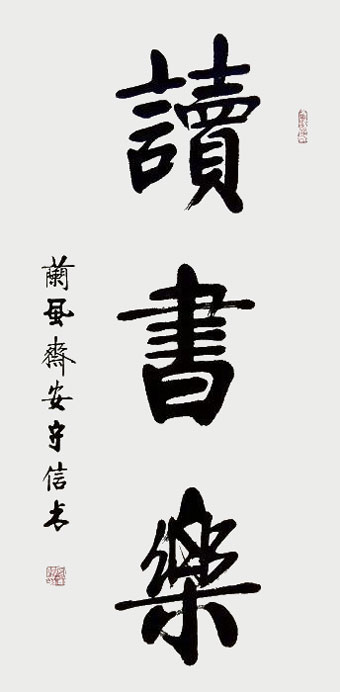 讀書樂
蘭風齋安守信书